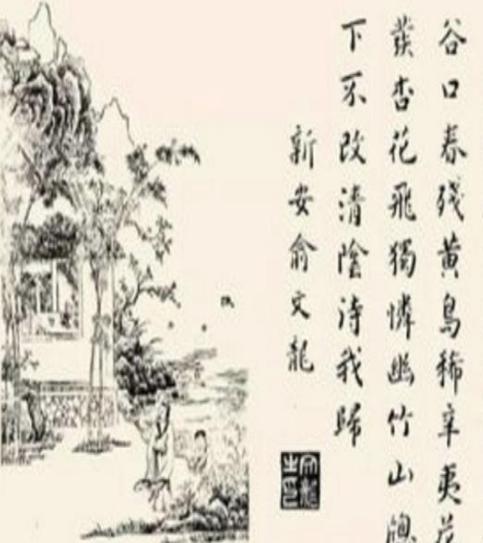 谷口春殘黄鳥稀辛夷花
杏花飛獨憐幽竹山
下不改清陰待我歸
新安俞文龍